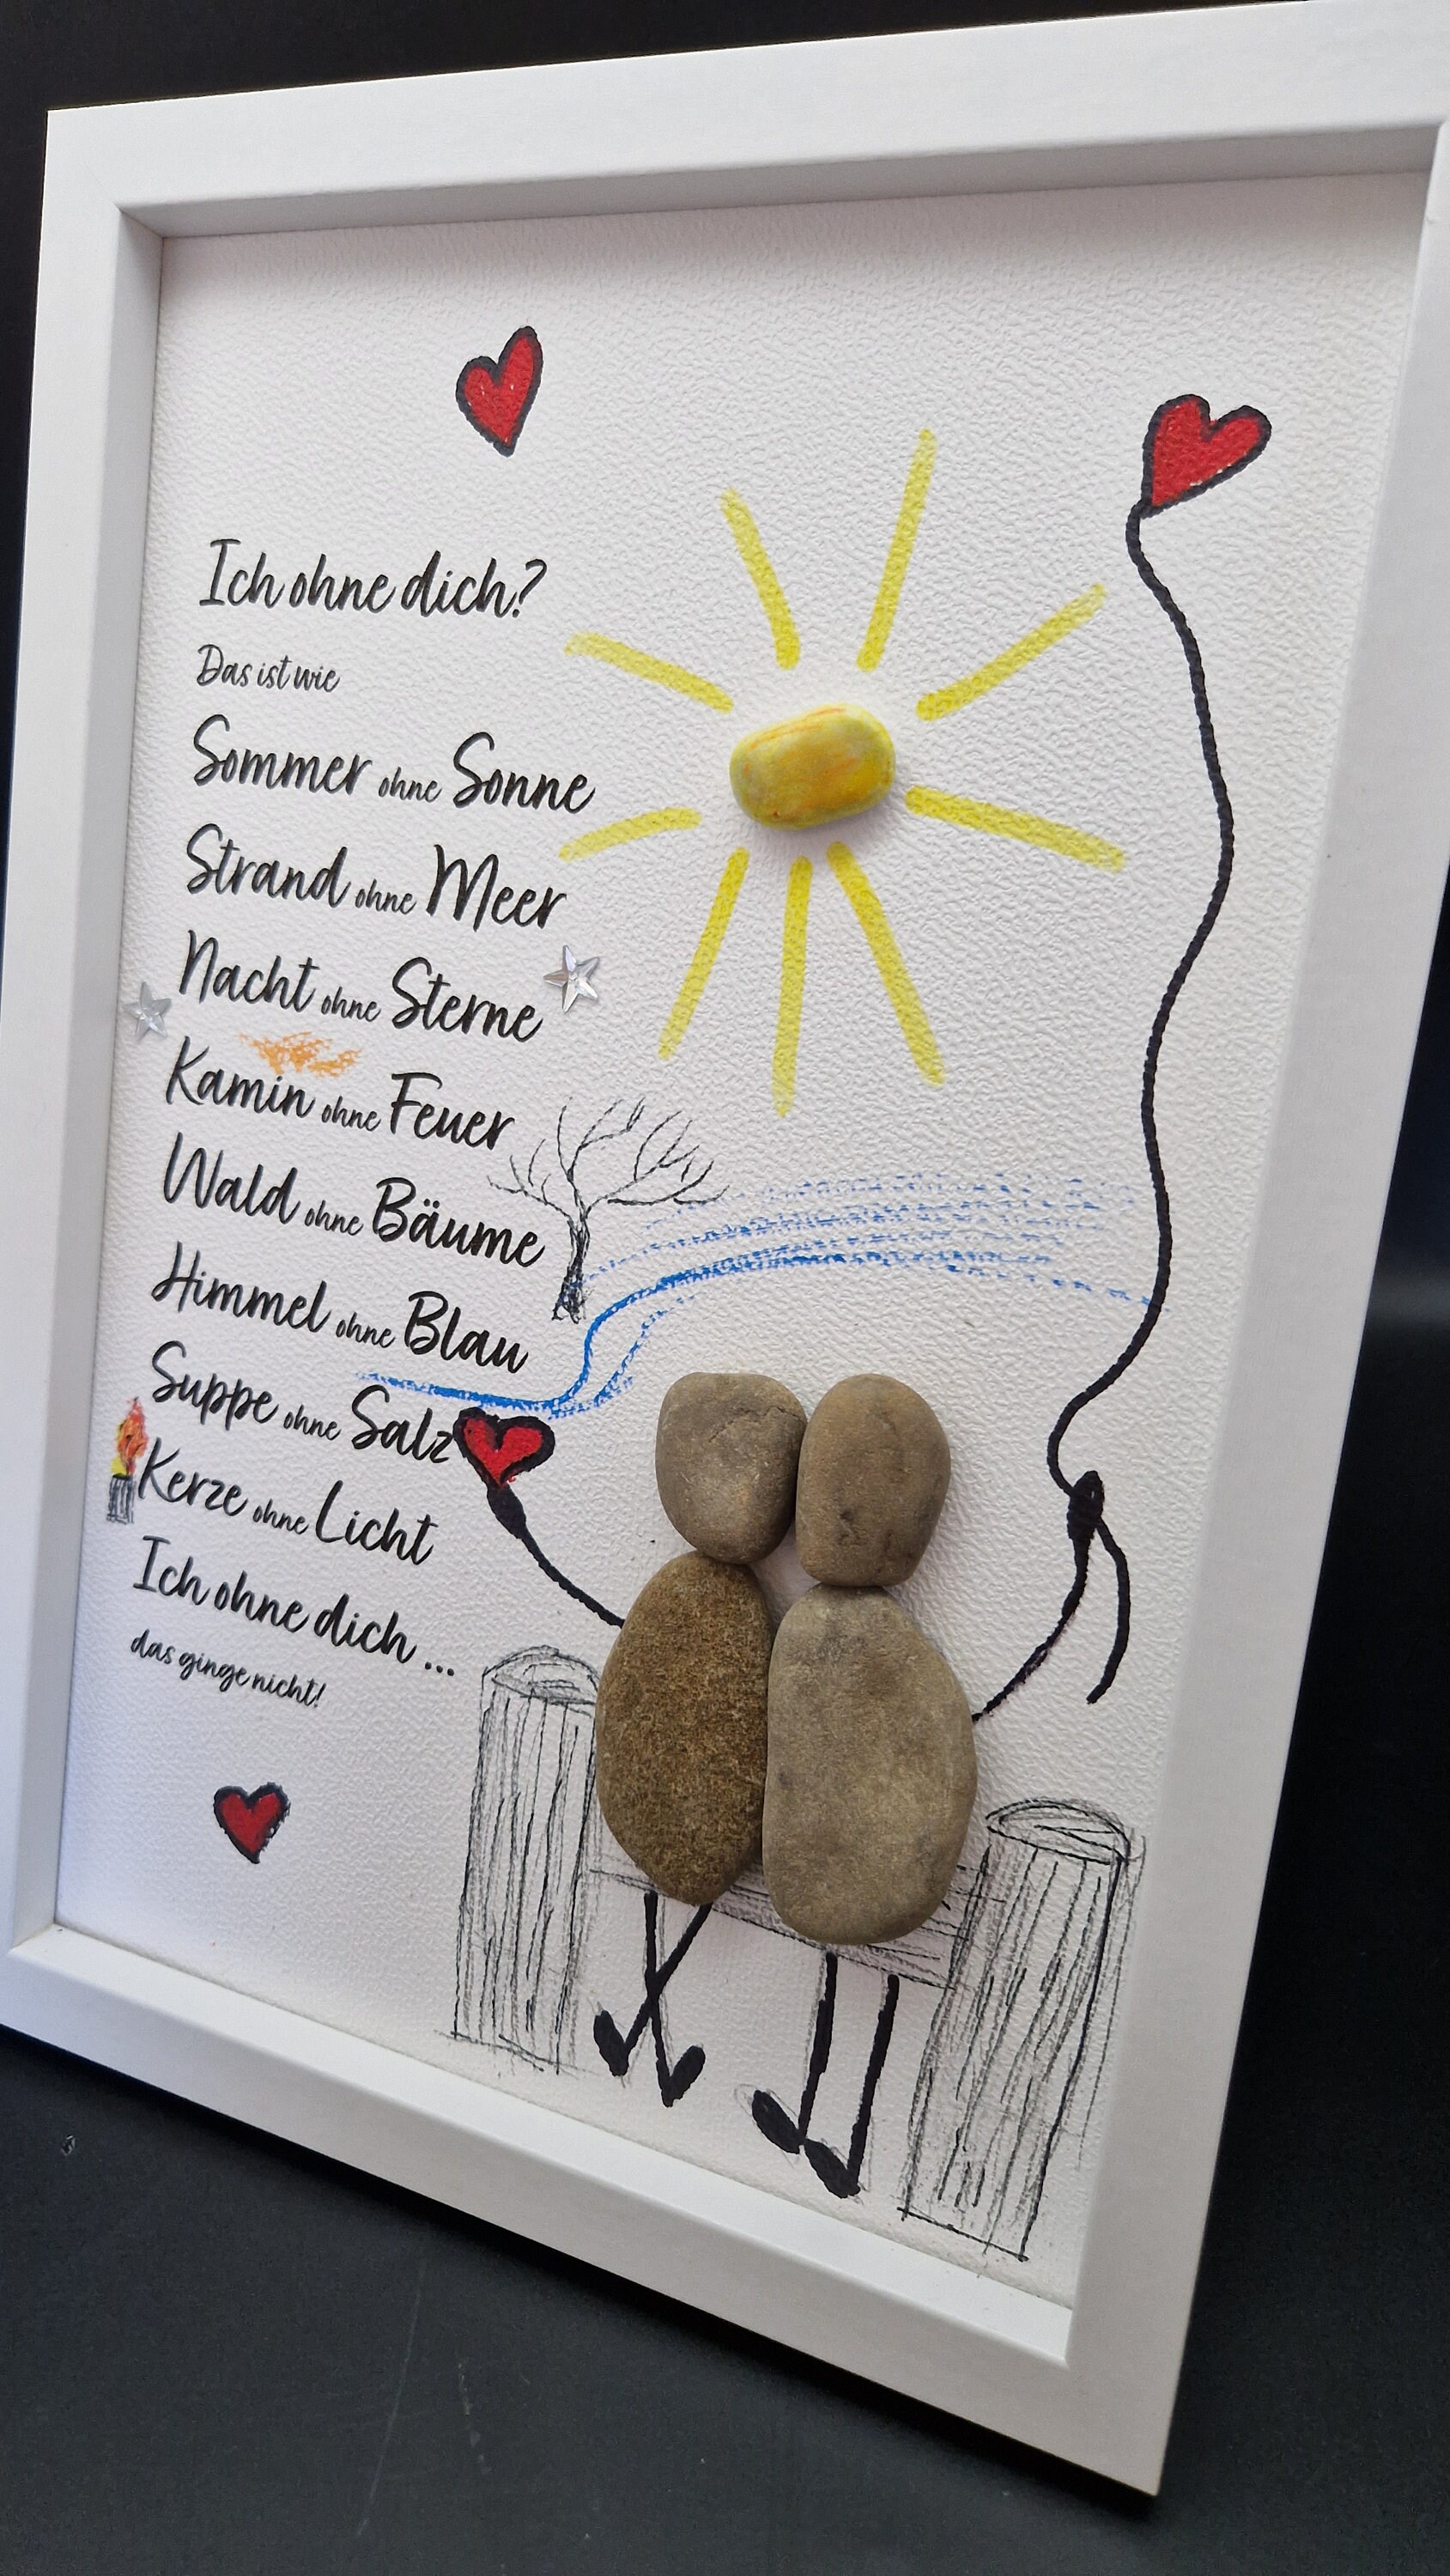 Ich ohne dich?
Das ist wie
Sommer ohne Sonne
Strand ohne Meer
Nacht ohne Sterne
Kamin ohne Feuer
Wald ohne Bäume
Himmel ohne Blau
Suppe ohne Salz
Kerze ohne Licht
Ich ohne dich ...
das ginge nicht!